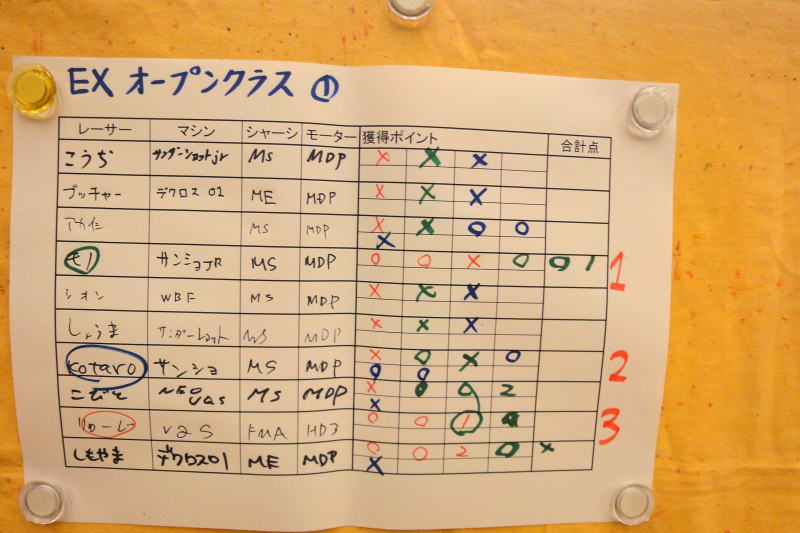 EX オープンクラス ①
レーサー マシン シャーシ モーター 獲得ポイント 合計点
こうぢ サンダーショットjr MS MDP × × ×
ブッチャー デクロス 01 ME MDP × × ×
MS MDP × × 0 0
×
モノ サンショJR MS MDP 0 0 × 0 0 1 1
シオン WBF MS MDP × × ×
しょうま サンダーショット MS MDP × × ×
kotaro サンショ MS MDP × 0 × 0 2
こびと NEO VQS MS MDP × 0 2
×
りゅーじ VQS FMA HD3 0 0 1 3
しもやま デクロス01 ME MDP 0 0 2 0 ×
×